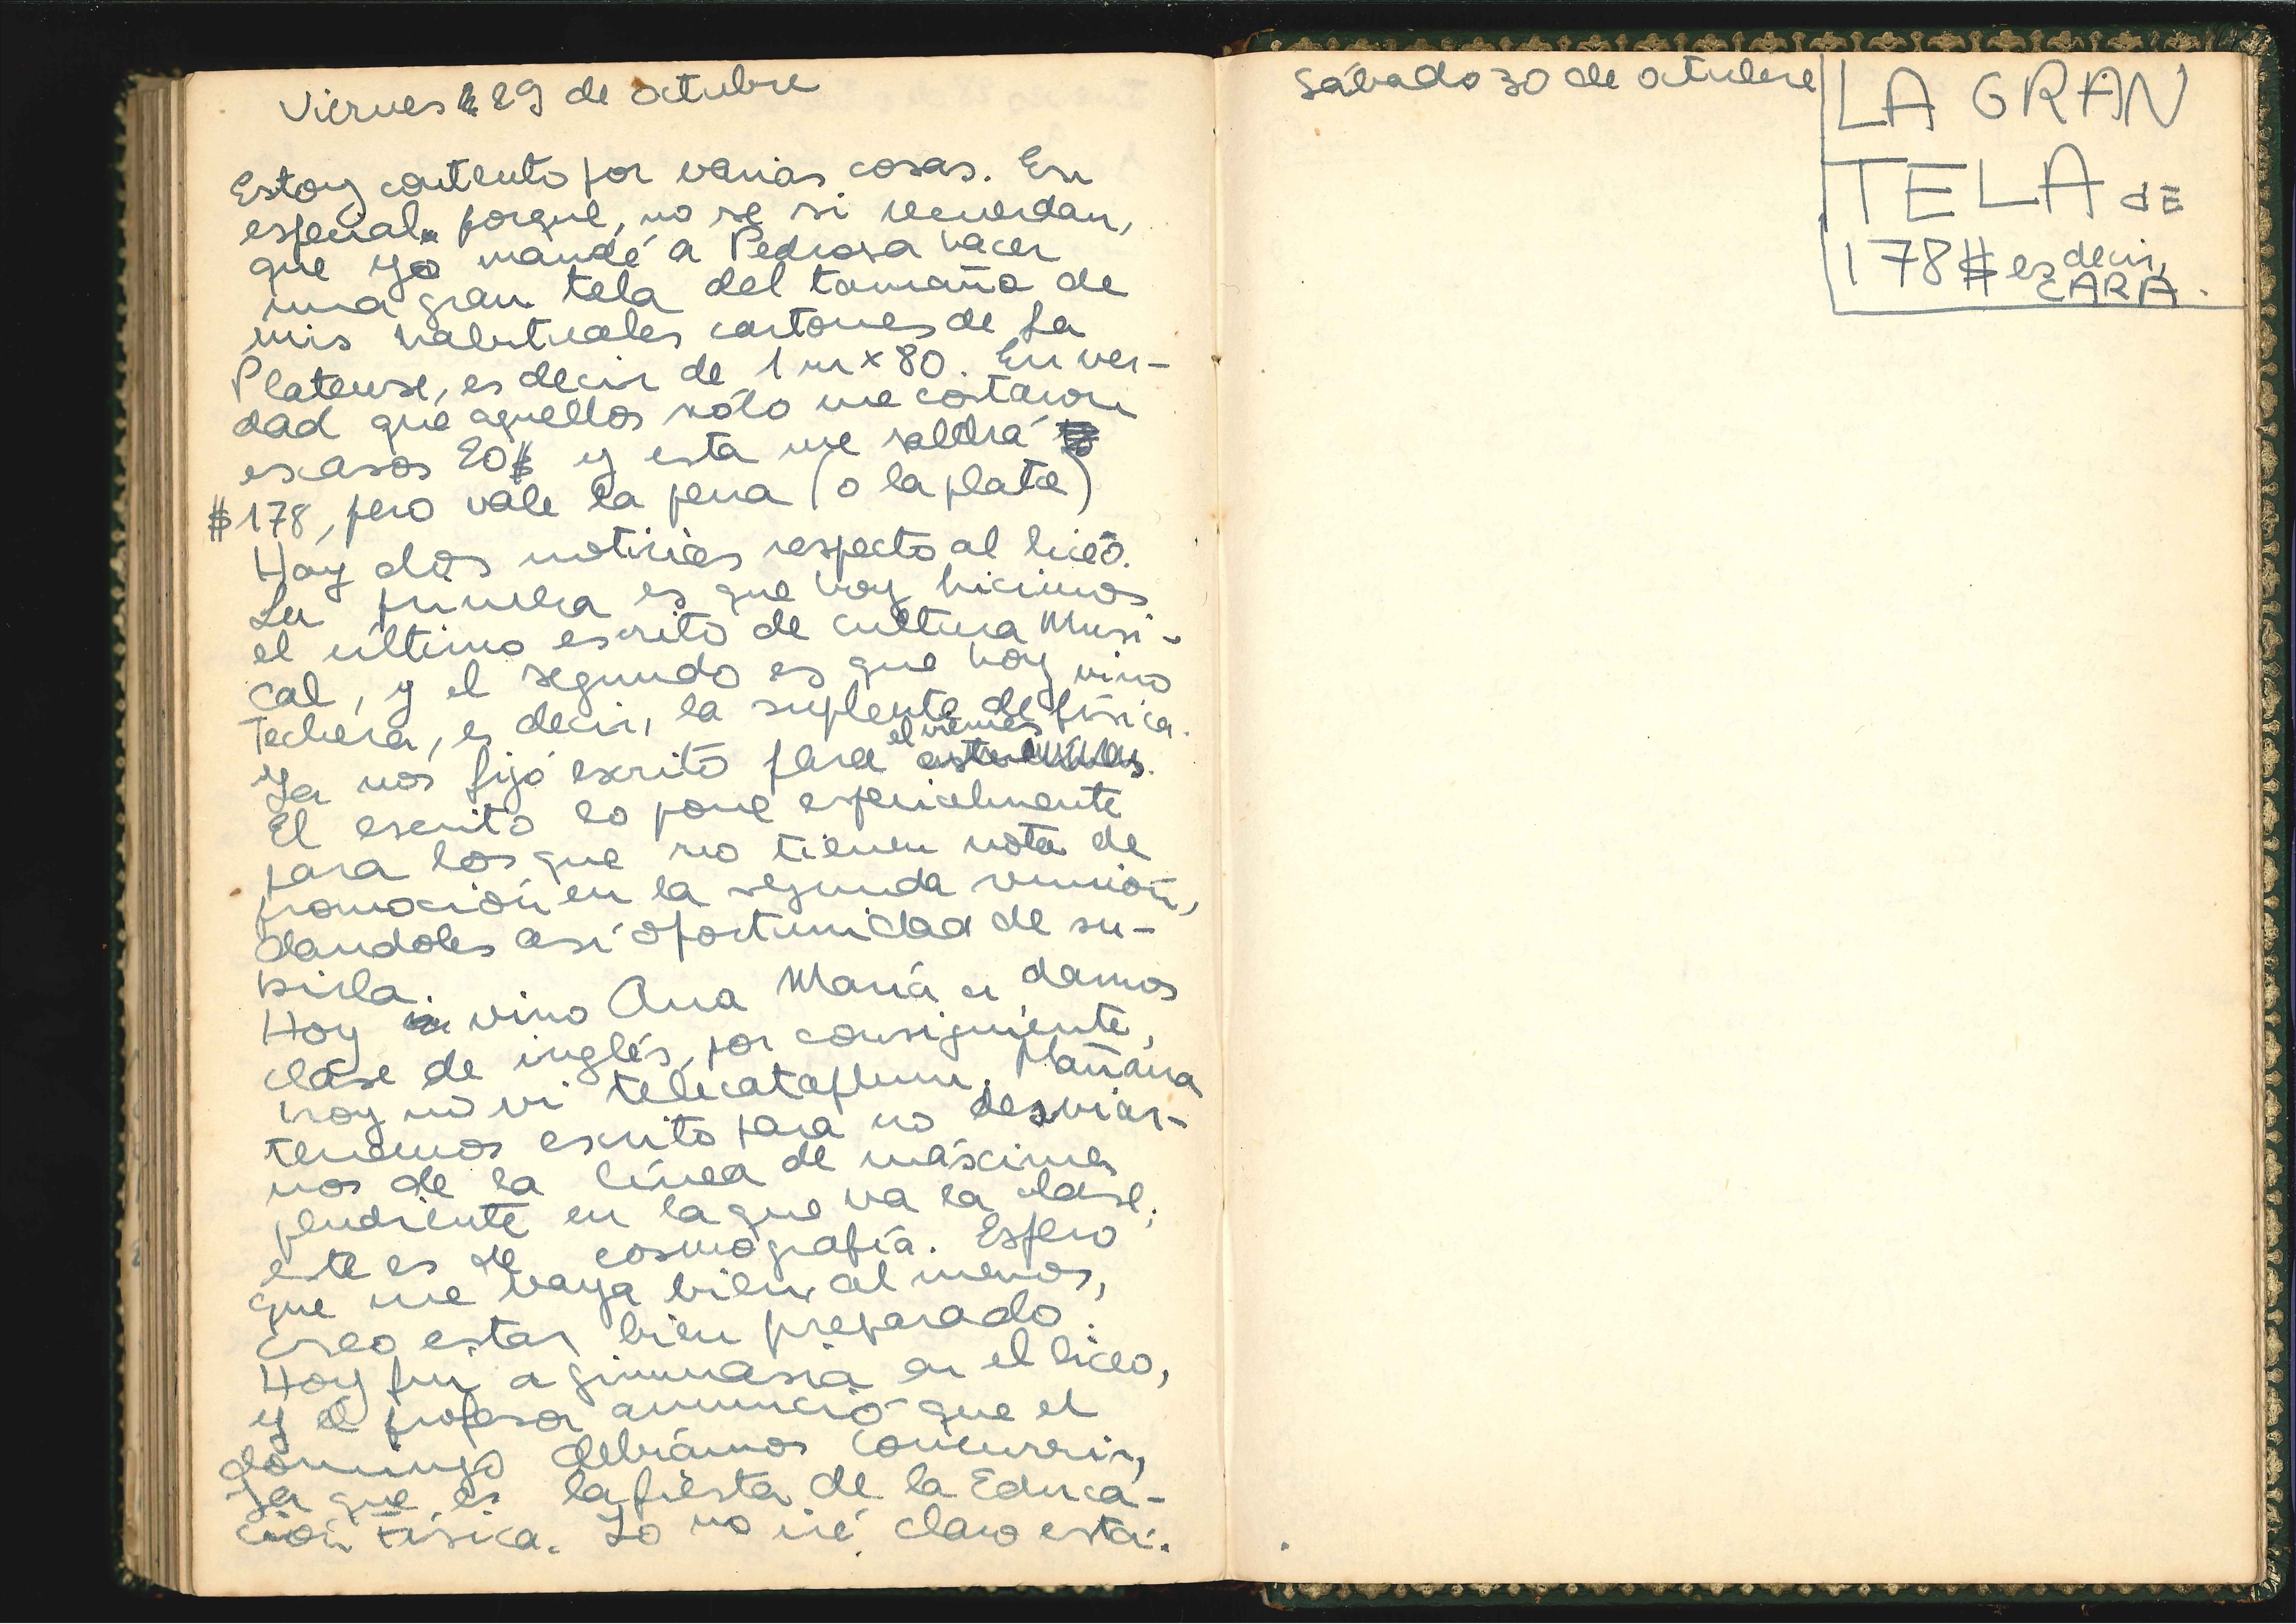 Viernes 29 de octubre
Estoy contento por varias cosas. En
especial porque, no se si recuerdan,
que yo mandé a Pedrosa hacer
una gran tela del tamaño de
mis habituales cartones de La
Platense, es decir de 1 m x 80. En ver-
dad que aquellos sólo me costaron
escasos 20$ y esta me saldrá
$178, pero vale la pena (o la plata)
Hay dos noticias respecto al liceo.
La primera es que hoy hicimos
el último escrito de cultura Musi-
cal, y el segundo es que hoy vino
Techera, es decir, la suplente de física.
Ya nos fijó escrito para el viernes
El escrito lo pone especialmente
para los que no tienen nota de
promoción en la segunda reunión,
dandoles así oportunidad de su-
birla.
Hoy vino Ana María a darnos
clase de inglés, por consiguiente,
hoy no vi telecataplum. Mañana
tenemos escrito para no desviar-
nos de la línea de máxima
pendiente en la que va la clase;
este es de cosmografía. Espero
que me vaya bien, al menos,
creo estar bien preparado.
Hoy fui a gimnasia en el liceo,
y el profesor anunció que el
domingo debíamos concurrir,
ya que es la fiesta de la Educa-
ción Física. Yo no iré claro está.
Sábado 30 de octubre
LA GRAN
TELA dE
178$ es decir,
CARA.